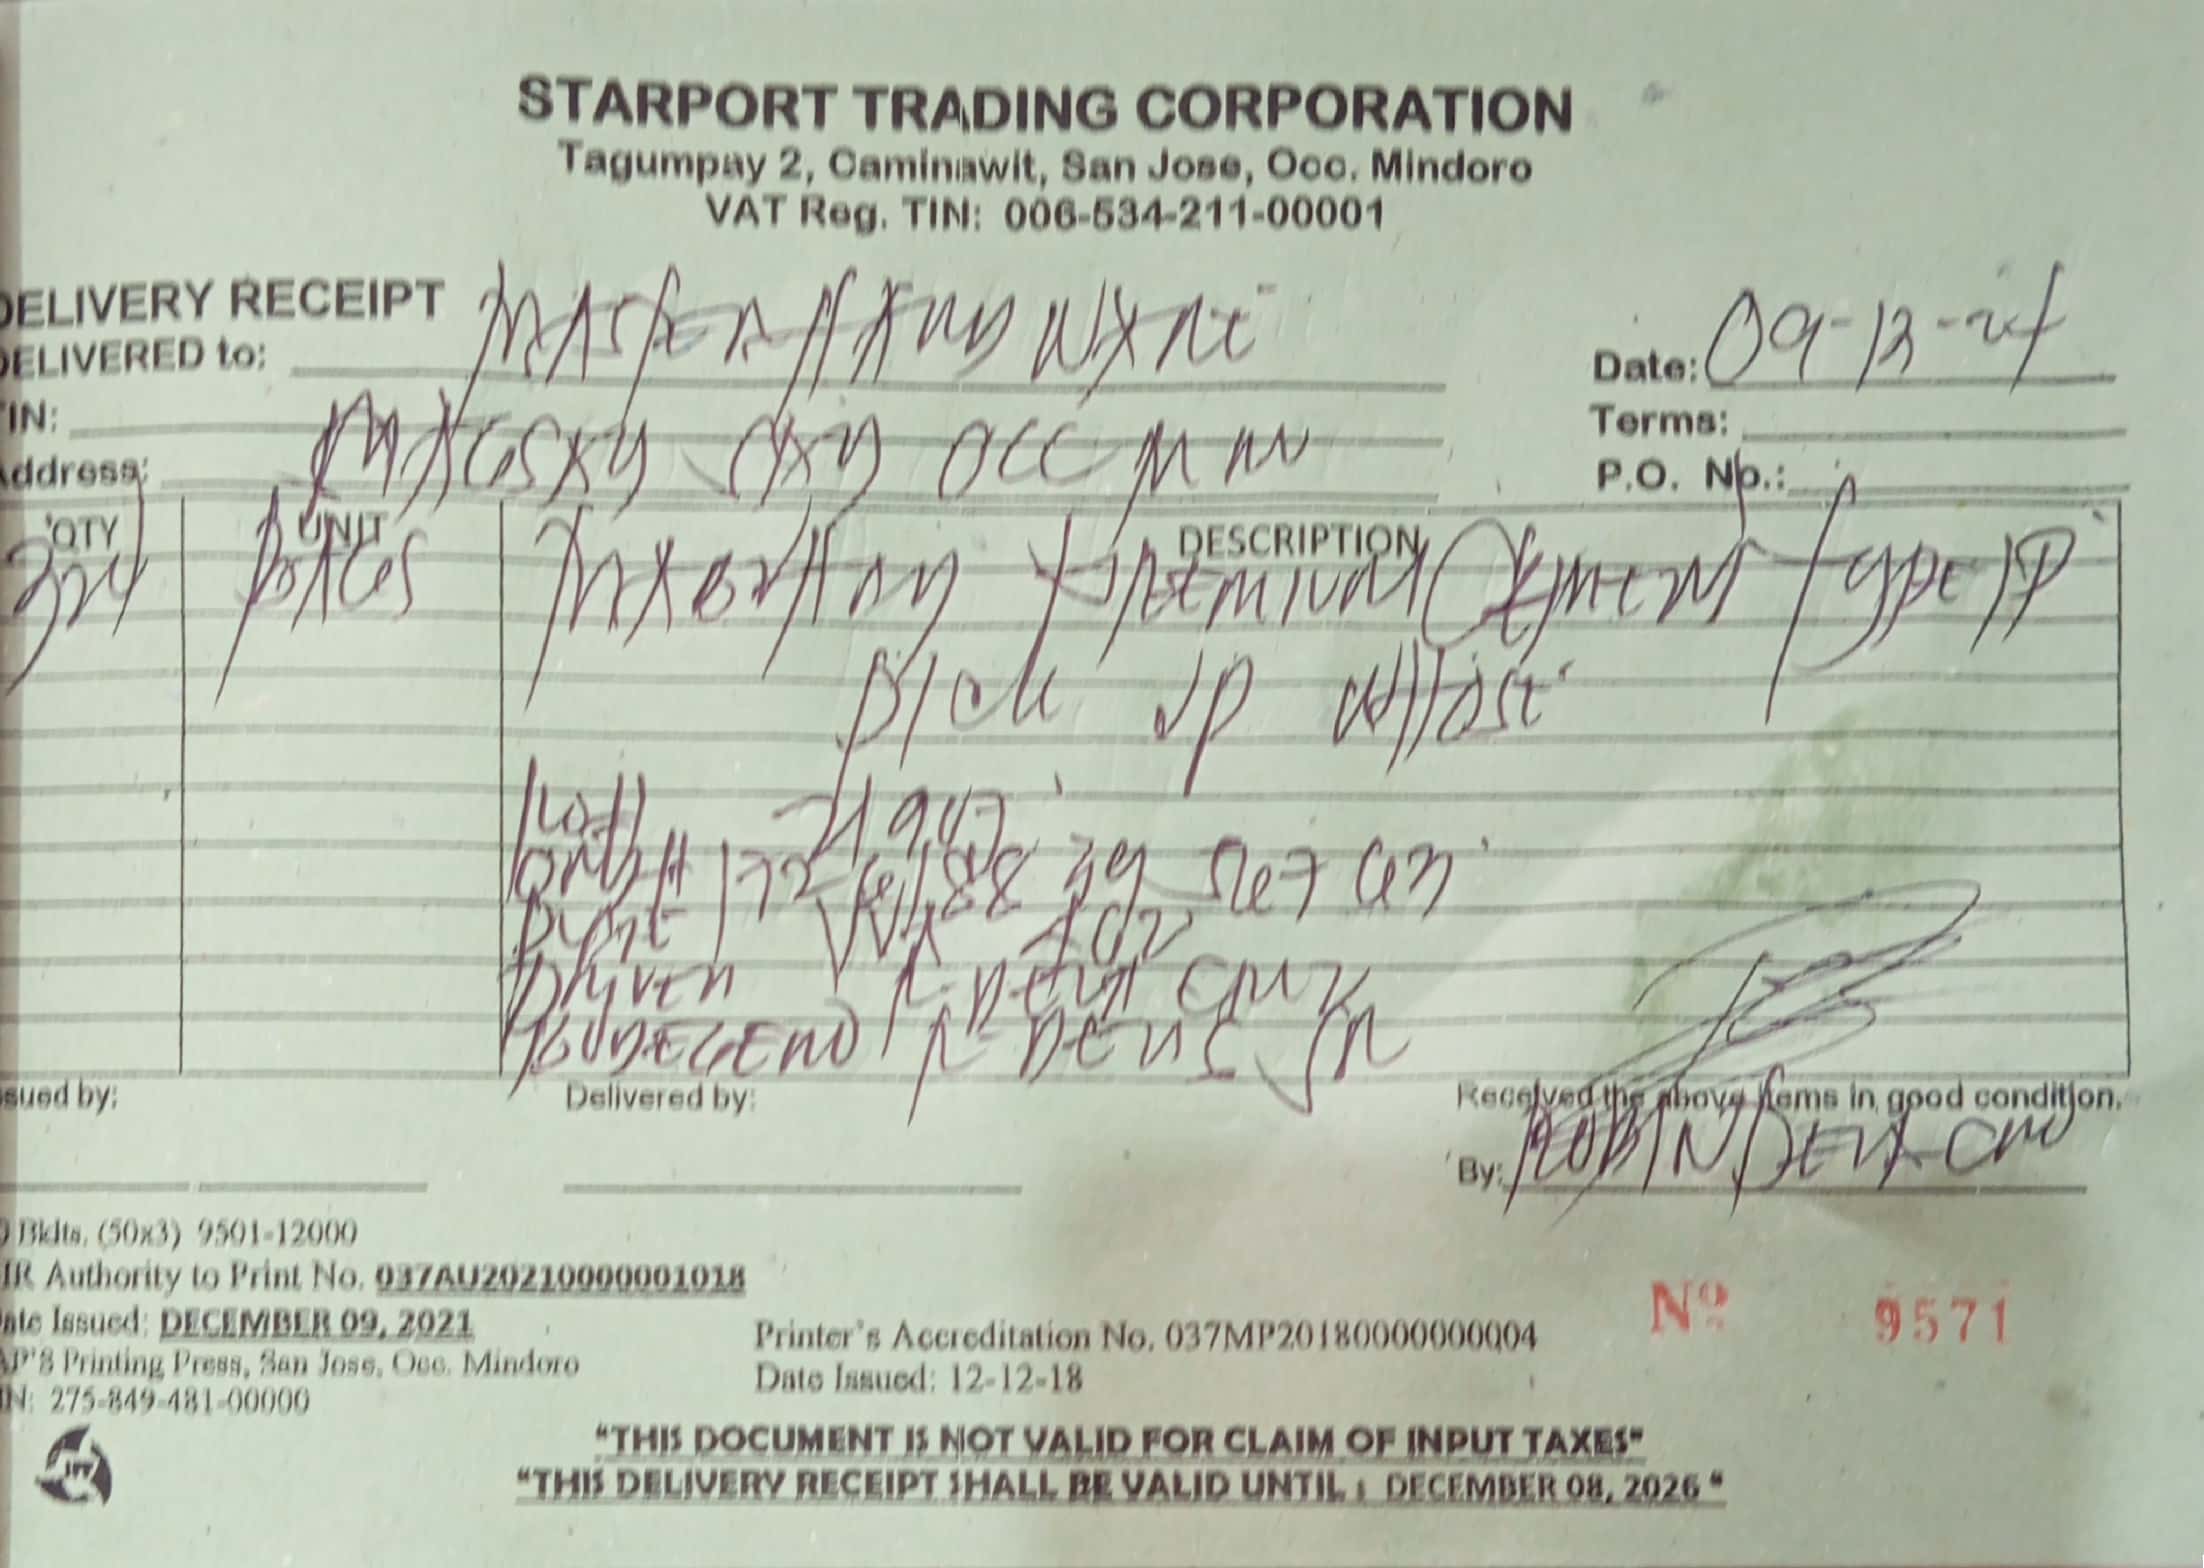 STARPORT TRADING CORPORATION
Tagumpay 2, Caminawit, San Jose, Occ. Mindoro
VAT Reg. TIN: 006-534-211-00001
DELIVERY RECEIPT
DELIVERED to: MASTER HARDWARE
Date: 09-12-24
TIN:
Terms:
Address: MAGSAY SAY OCC MIN
P.O. No.:
QTY UNIT DESCRIPTION
BAGS PREMIUM CEMENT TYPE 1P
PICK UP
DRIVER R. DELA CRUZ
R. DELA C JR
Issued by:
Delivered by:
Received the above items in good condition.
By: ROBIN DELA CRUZ
Bklts. (50x3) 9501-12000
BIR Authority to Print No. 037AU20210000001018
Date Issued: DECEMBER 09, 2021
AP'S Printing Press, San Jose, Occ. Mindoro
TIN: 275-849-481-00000
Printer's Accreditation No. 037MP20180000000004
Date Issued: 12-12-18
Nº 9571
"THIS DOCUMENT IS NOT VALID FOR CLAIM OF INPUT TAXES"
"THIS DELIVERY RECEIPT SHALL BE VALID UNTIL : DECEMBER 08, 2026"